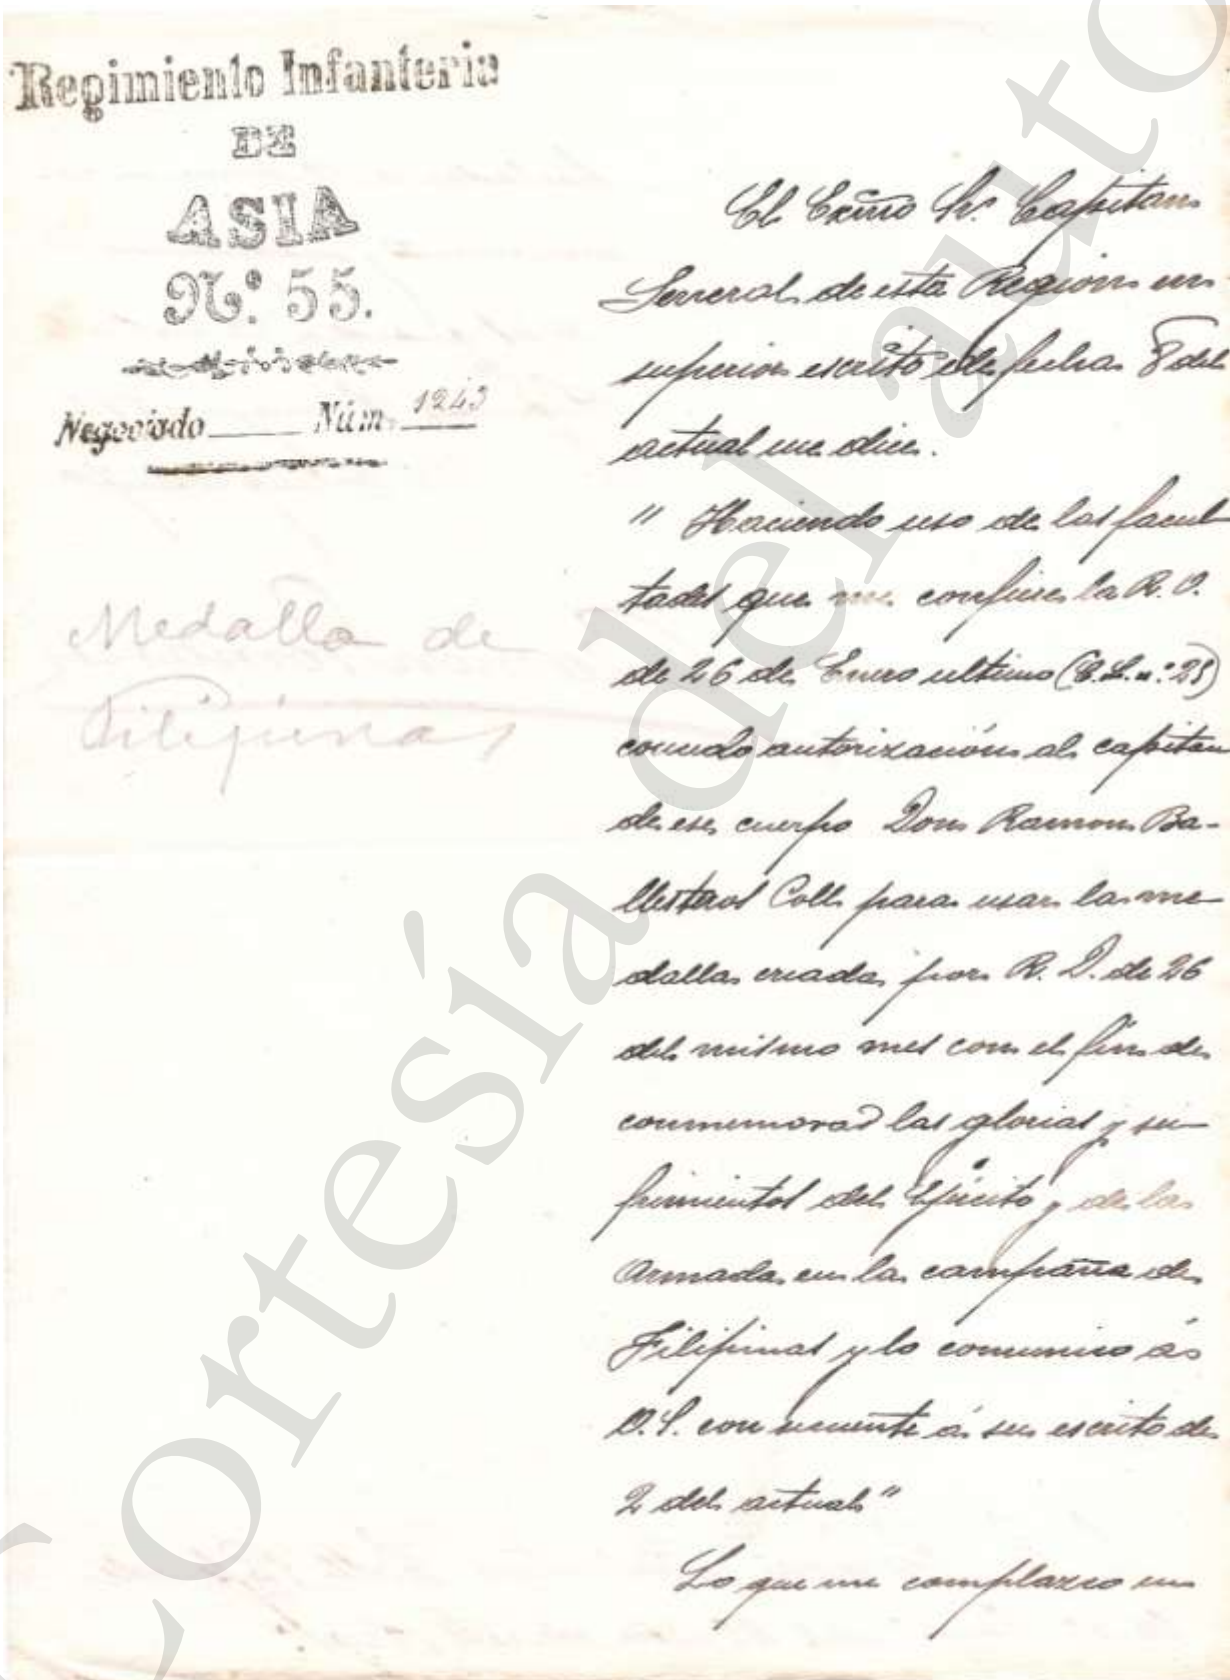 Regimiento Infanteria
DE
ASIA
N.º 55.
Negociado Núm. 1243
Medalla de
Filipinas
El Excmo Sr. Capitan
General de esta Region en
superior escrito de fecha 8 del
actual me dice.
" Haciendo uso de las facul
tades que me confiere la R. O.
de 26 de Enero ultimo (C.L. n.º 25)
concedo autorización al capitan
de ese cuerpo Don Ramon Ba-
llesteros Coll para usar la me-
dalla creada por R. D. de 26
del mismo mes con el fin de
conmemorar las glorias y su-
frimientos del Ejército y de la
Armada en la campaña de
Filipinas y lo comunico á
V.S. como á su escrito de
2 del actual"
Lo que me complazco en
Cortesía del auto